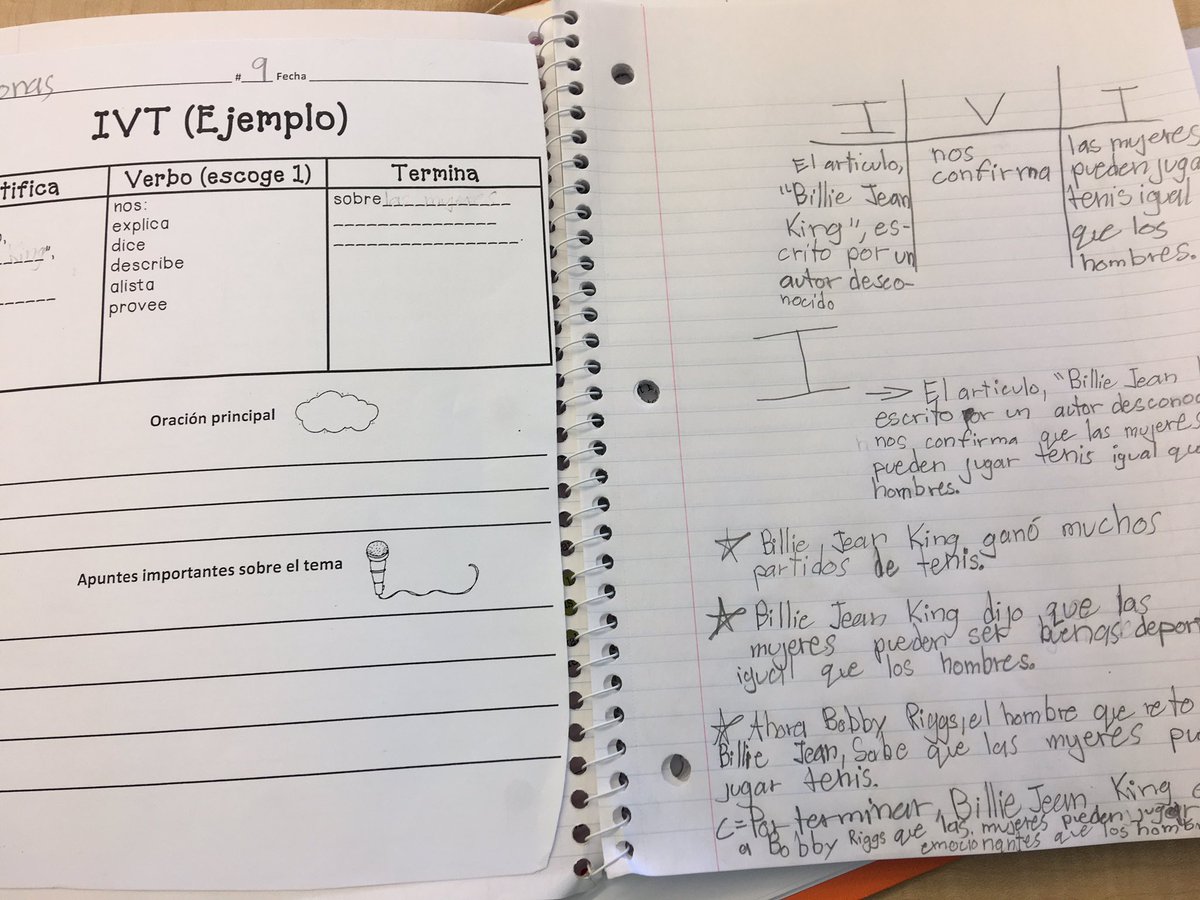 onas # 9 Fecha
IVT (Ejemplo)
tifica Verbo (escoge 1) Termina
nos: sobre las mujeres
explica
dice
describe
alista
provee
Oración principal
Apuntes importantes sobre el tema
I V T
El articulo,
"Billie Jean
King", es-
crito por un
autor desco-
nocido
nos
confirma
las mujeres
pueden juga
tenis igual
que los
hombres.
I
⇒ El articulo, "Billie Jean
escrito por un autor descono
nos confirma que las mujeres
pueden jugar tenis igual que
hombres.
☆ Billie Jean King ganó muchos
partidos de tenis.
☆ Billie Jean King dijo que las
mujeres pueden ser buenas deport
igual que los hombres.
☆ Ahora Bobby Riggs, el hombre que reto
Billie Jean, Sabe que las myeres pu
jugar tenis.
C= Por terminar, Billie Jean King
a Bobby Riggs que las mujeres pueden jugar
emocionantes que los homb